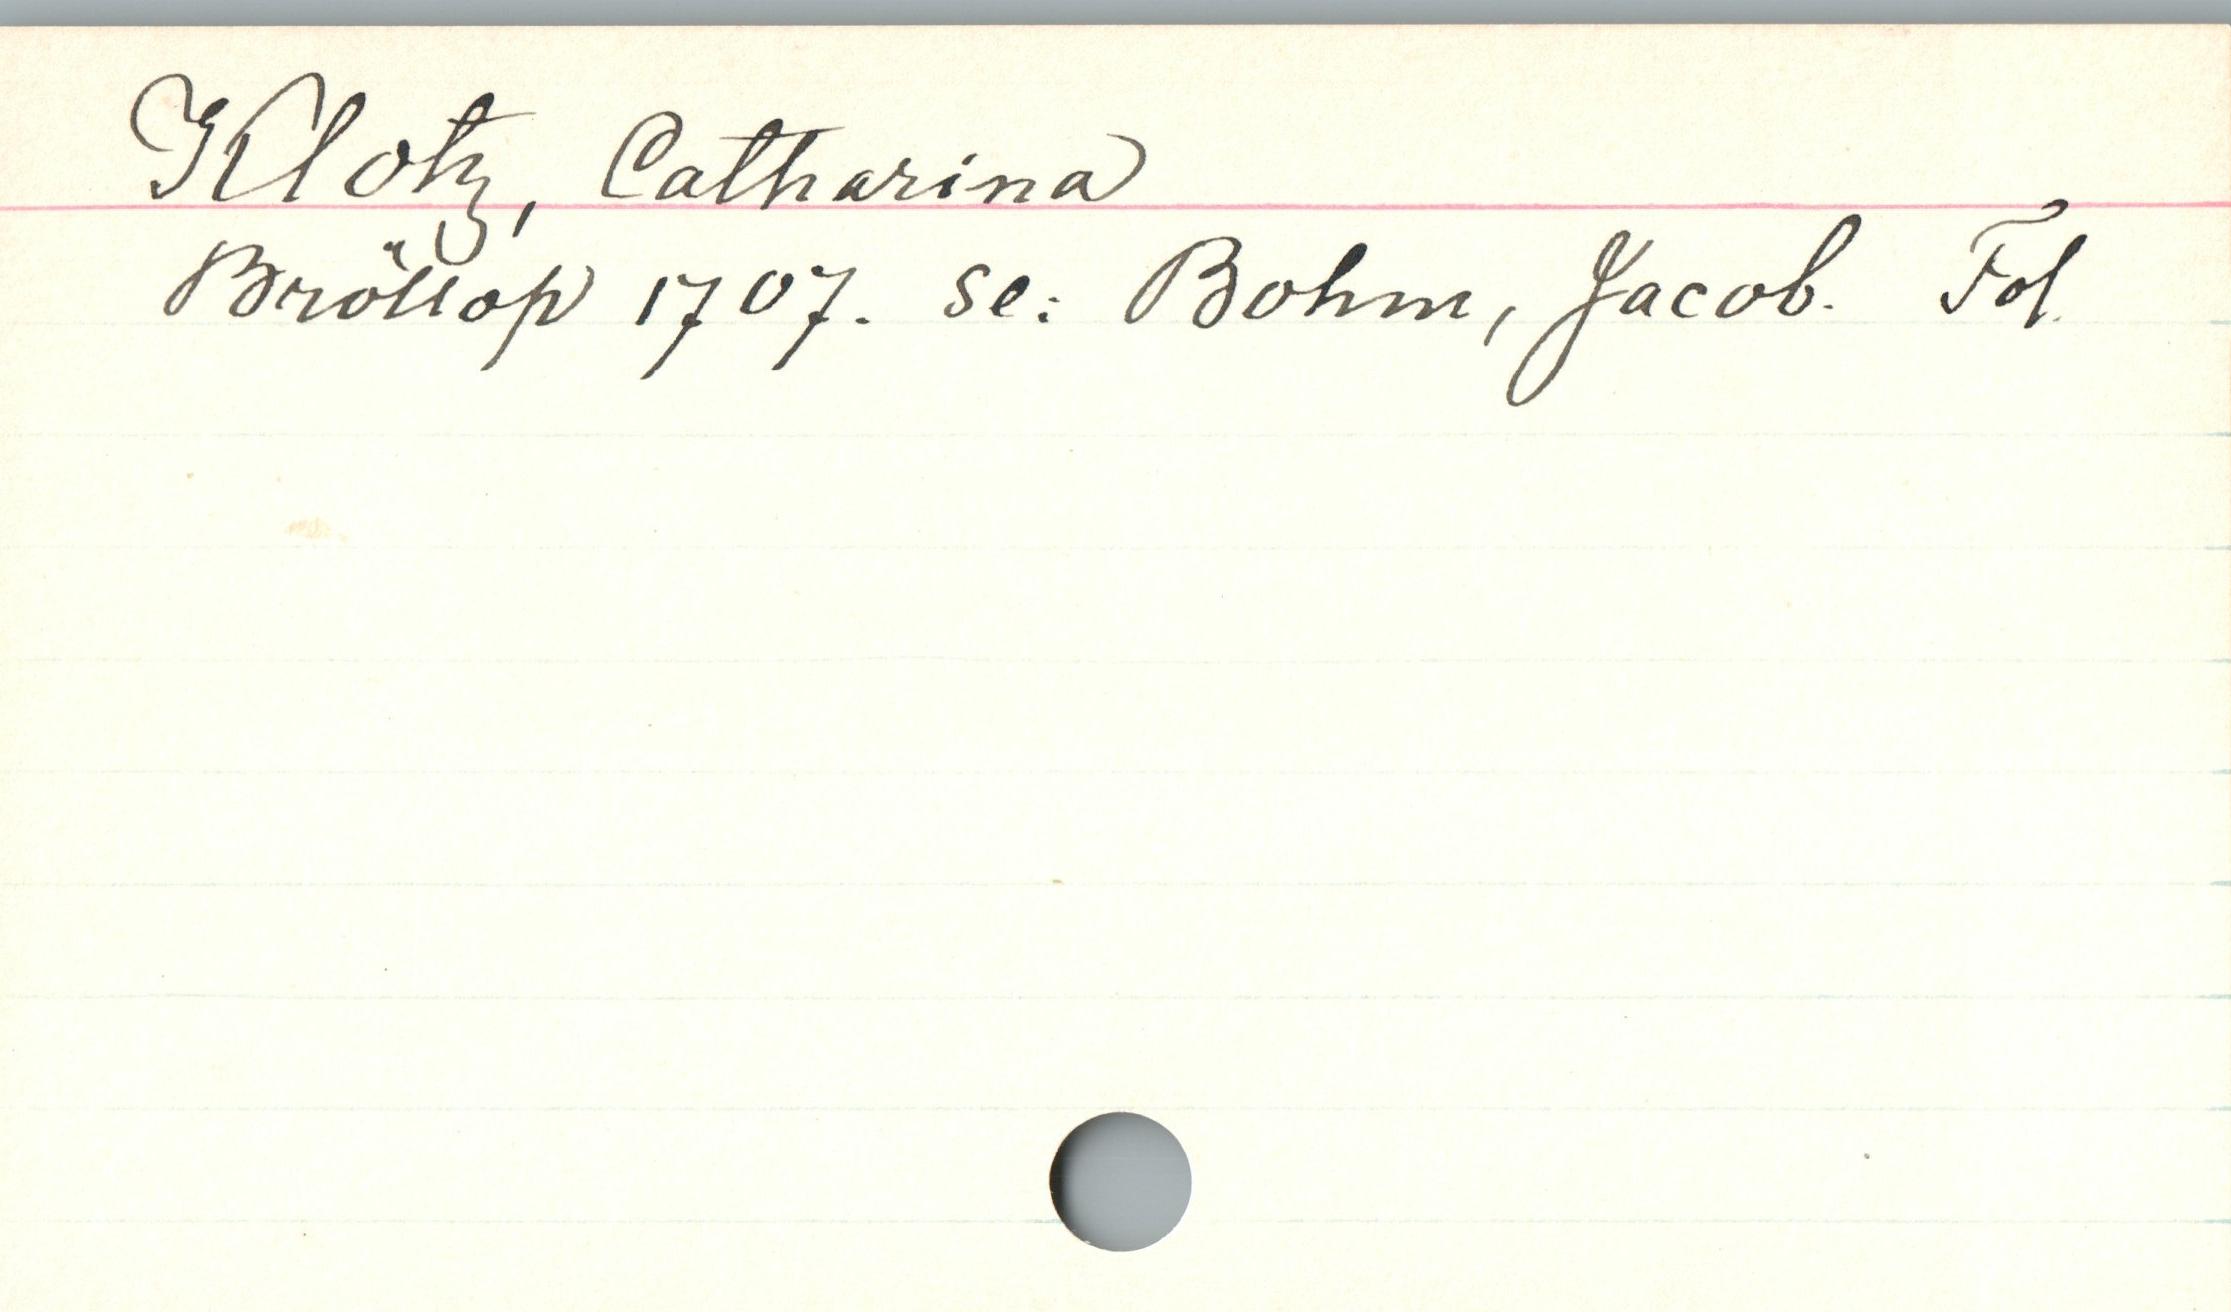 Klotz, Catharina
Bröllop 1707. se: Bohm, Jacob. Fol.